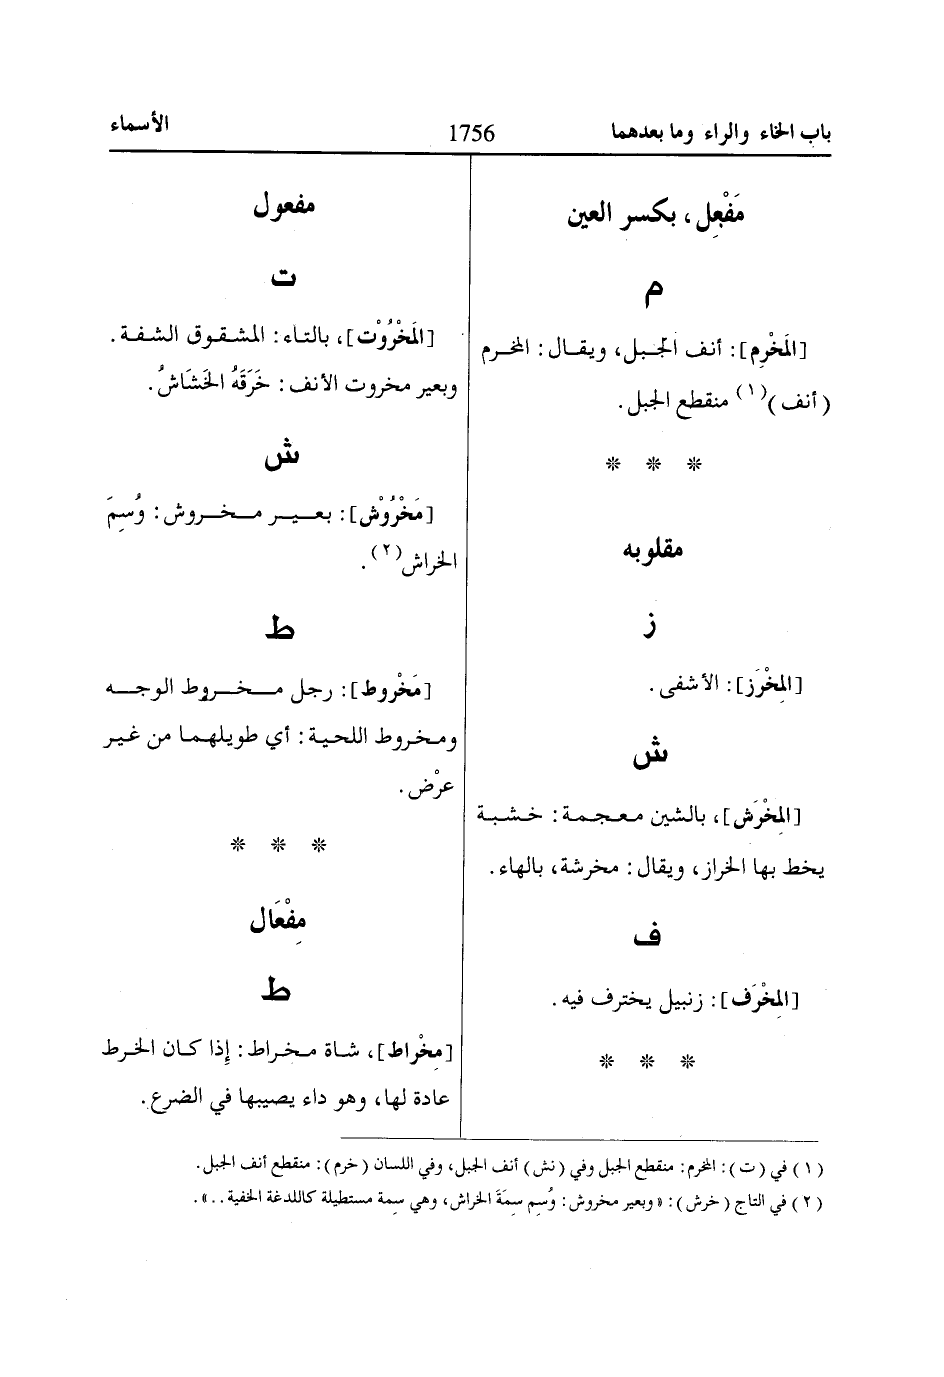 باب الخاء والراء وما بعدهما
1756
الأسماء
مَفْعِل، بكسر العين
م
[المَخْرِم]: أنف الجبل، ويقال: المخرم
(أنف)(١) منقطع الجبل.
* * *
مقلوبه
ز
[المِخْرَز]: الأشفى.
ش
[المِخْرَش]، بالشين معجمة: خشبة
يخط بها الخراز، ويقال: مخرشة، بالهاء.
ف
[المِخْرَف]: زنبيل يخترف فيه.
* * *
مفعول
ت
[المَخْرُوْت]، بالتاء: المشقوق الشفة.
وبعير مخروت الأنف: خَرَقَهُ الخَشَاشُ.
ش
[مَخْرُوْش]: بعيــر مخروش: وُسِمَ
الخراش(٢).
ط
[مَخْروط]: رجل مخروط الوجه
ومخروط اللحية: أي طويلهما من غير
عرْض.
* * *
مِفْعَال
ط
[مِخْراط]، شاة مخراط: إذا كان الخرط
عادة لها، وهو داء يصيبها في الضرع.
(١) في (ت): المخرم: منقطع الجبل وفي (نش) أنف الجبل، وفي اللسان (خرم): منقطع أنف الجبل.
(٢) في التاج (خرش): «وبعير مخروش: وُسِم سِمَةَ الخراش، وهي سمة مستطيلة كاللدغة الخفية..».